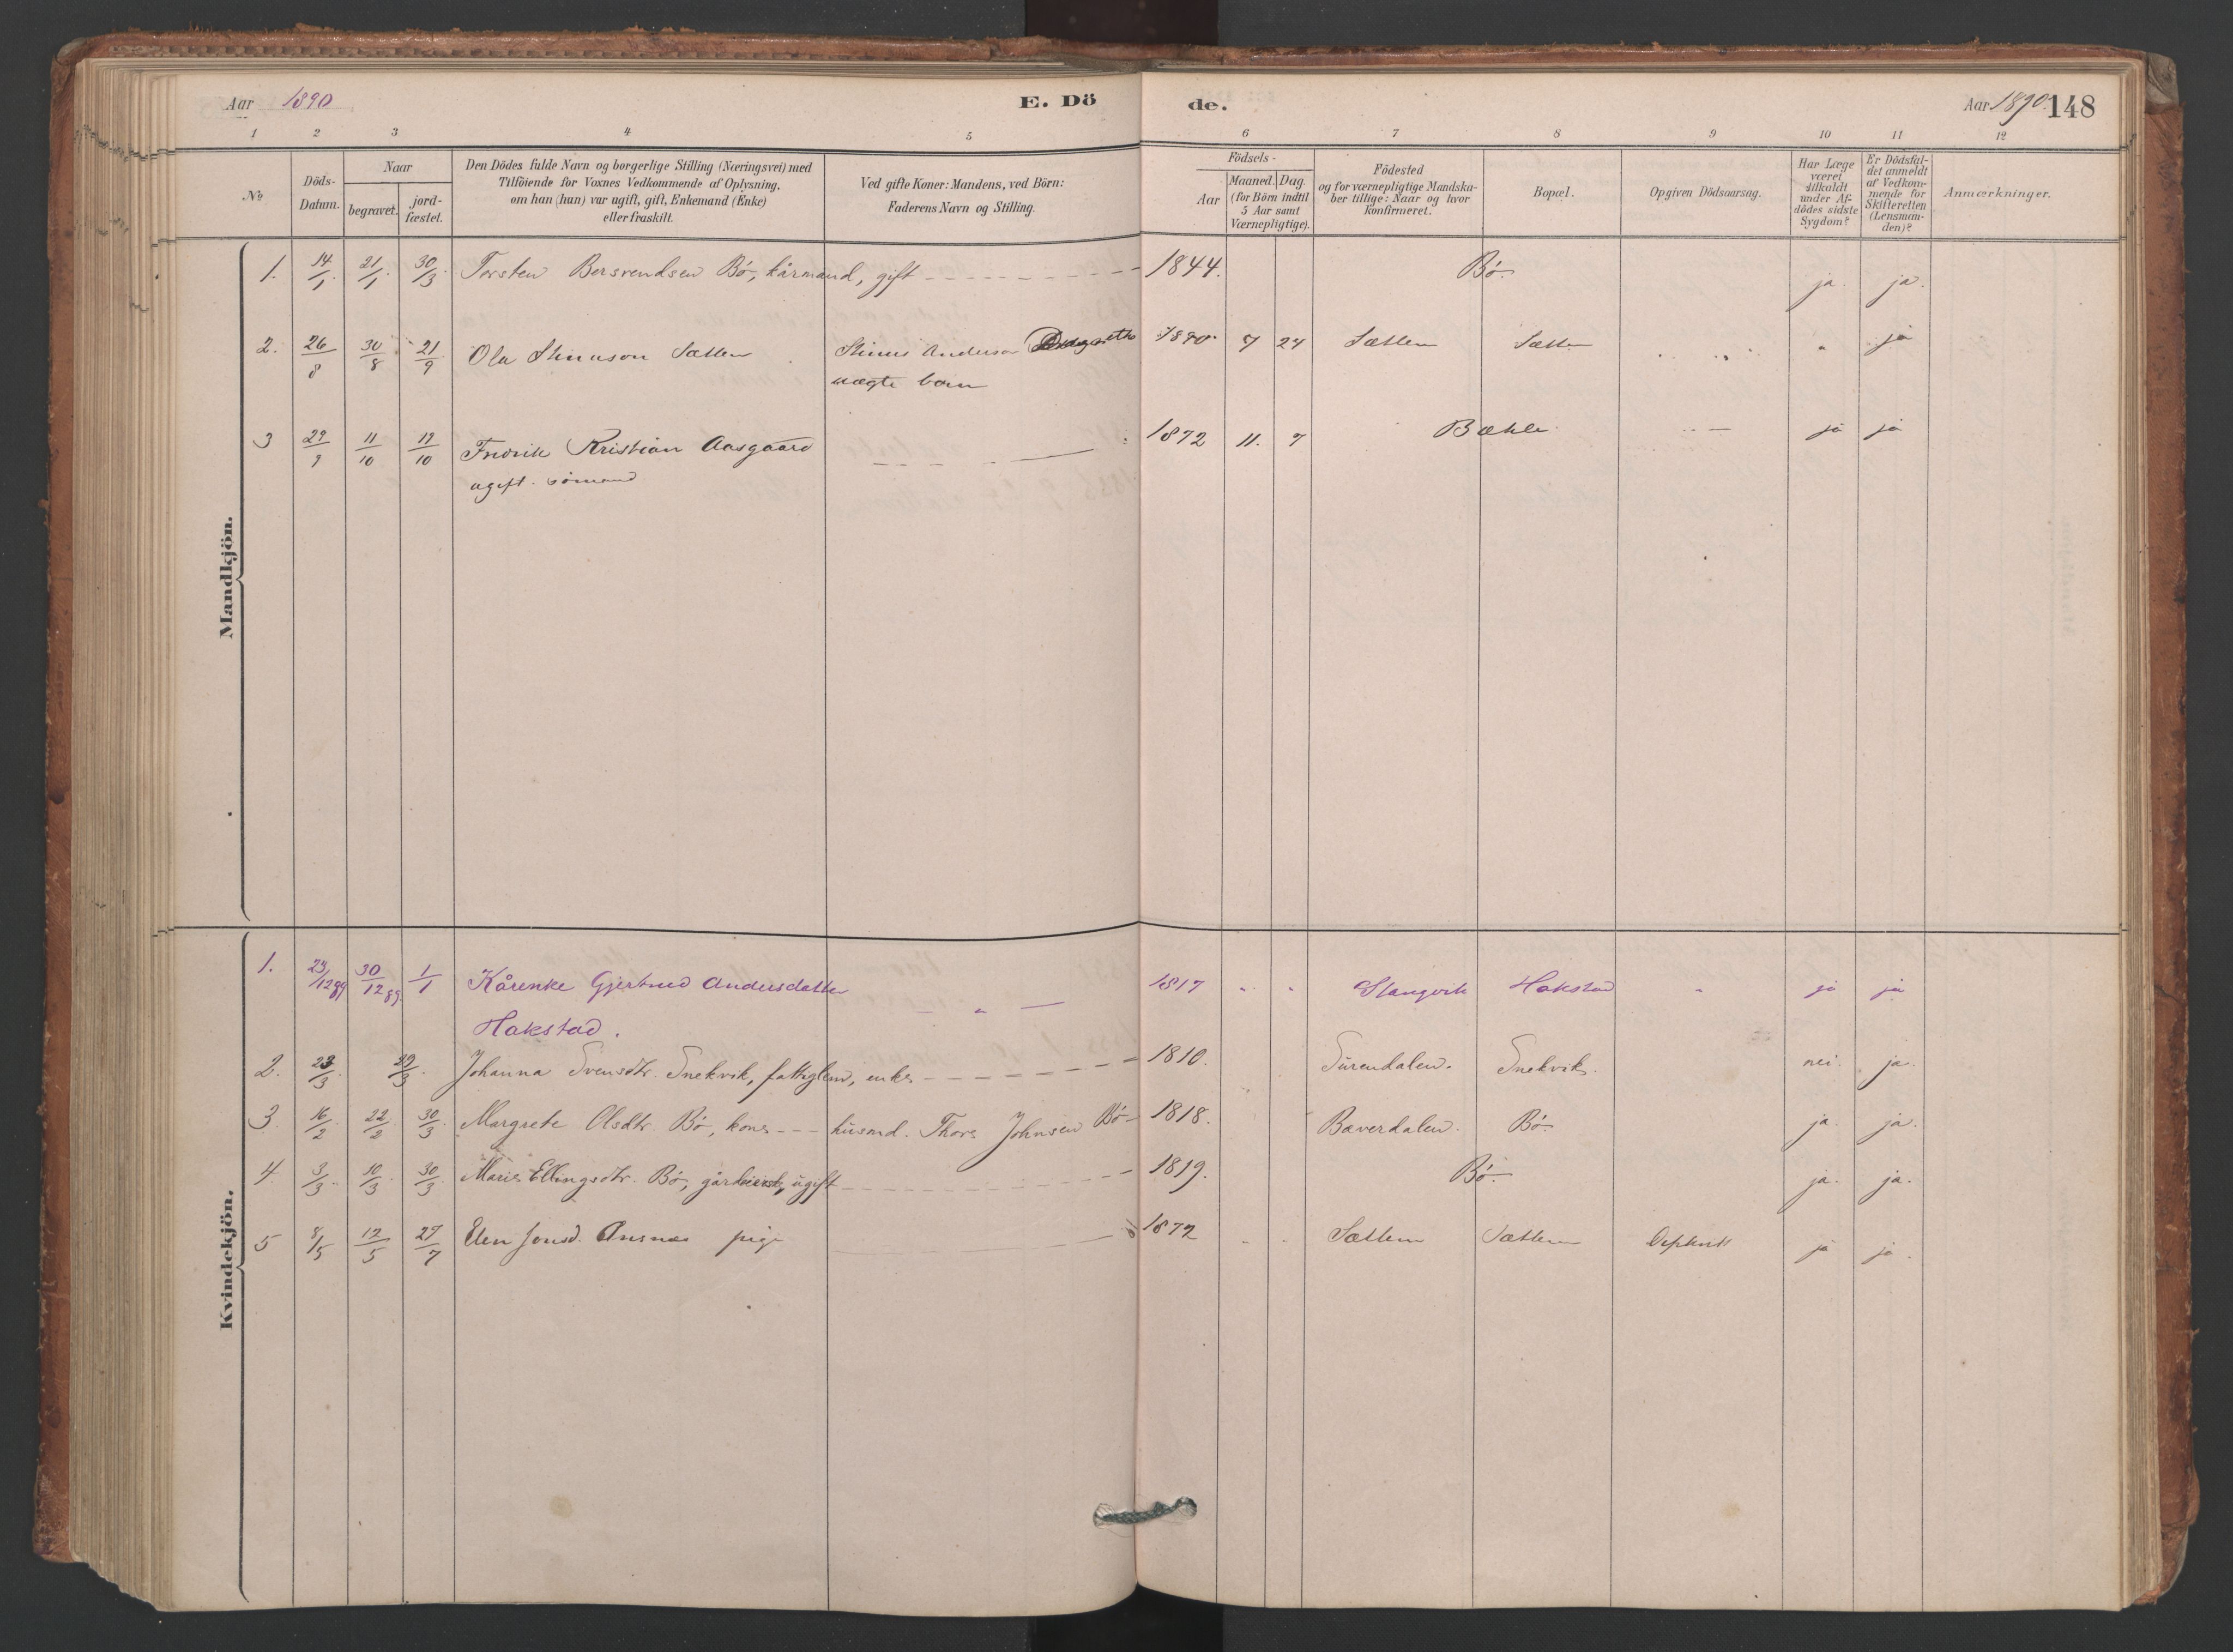 Aar 1890 E. Dö de. Aar 1890. 148
1 2 3 4 5 6 7 8 9 10 11 12
No
Döds-Datum.
Naar
begravet.
jord-fæstet.
Den Dödes fulde Navn og borgerlige Stilling (Næringsvei) med
Tilföiende for Voxnes Vedkommende af Oplysning,
om han (hun) var ugift, gift, Enkemand (Enke)
eller fraskilt.
Ved gifte Koner: Mandens, ved Börn:
Faderens Navn og Stilling.
Födsels-
Aar
Maaned. Dag.
(for Börn indtil
5 Aar samt
Værnepligtige).
Födested
og for værnepligtige Mandska-
ber tillige: Naar og hvor
konfirmeret.
Bopæl.
Opgiven Dödsaarsag.
Har Læge
været
tilkaldt
under Af-
dödes sidste
Sygdom?
Er Dödsfal-
det anmeldt
af Vedkom-
mende for
Skifteretten
(Lensman-
den)?
Anmærkninger.
Mandkjön.
1. 14/1. 21/1. 30/3. Torsten Bersvendsen Bö, kårmand, gift 1844. Bö. ja. ja.
2. 26/8 30/8 21/9 Ola Stinuson Sættem Stinus Anderson 1890. 7 24 Sættem Sættem " ja
uægte barn
3 29/9 11/10 12/10 Fredrik Kristian Aasgaard 1872 11. 7 Bækle ja ja
ugift. sömand
Kvindekjön.
1. 23/12 89 30/12 89. 1/1 Kårenke Gjertrud Andersdatter " 1817 " " Stangvik Hakstad " ja ja
Hakstad.
2. 23/3. 29/3. Johanna Svensdtr. Snekvik, fattiglem, enke 1810. Surendalen. Snekvik. nei. ja.
3. 16/2 22/2 30/3 Margrete Olsdtr. Bö, kone husmd. Thore Johnsen Bö 1818. Bæverdalen. Bö. ja. ja.
4. 3/3. 10/3 30/3 Marie Ellingsdtr. Bö, ugift 1819. Bö. ja. ja.
5 8/5 12/5 27/7 Elen Jonsd. Ansnes pige 1872 Sættem Sættem ja ja.